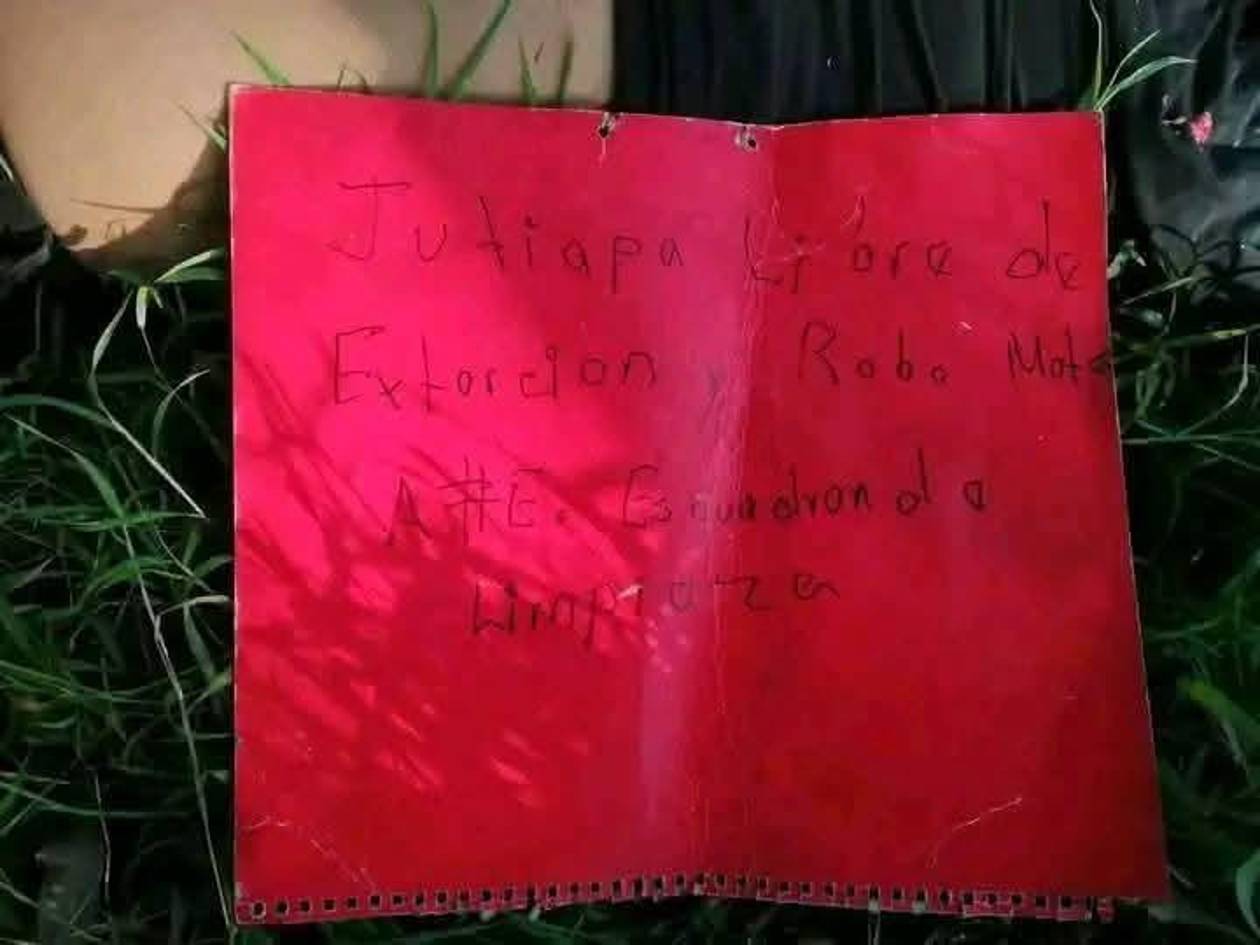 Jutiapa Libre de
Extorcion y Robo
A#E. Escuadron de
Limpieza